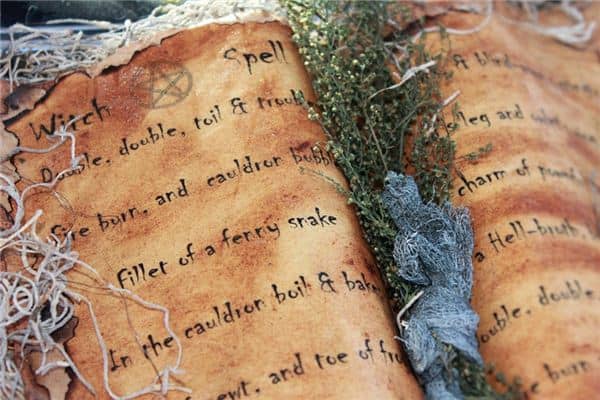 Witch Spell
Double, double, toil & troub
Fire burn, and cauldron bubbl
Fillet of a fenny snake
In the cauldron boil & bake
ewt, and toe of fro
&
leg and
charm of
a Hell-broth
ouble, double,
burn,